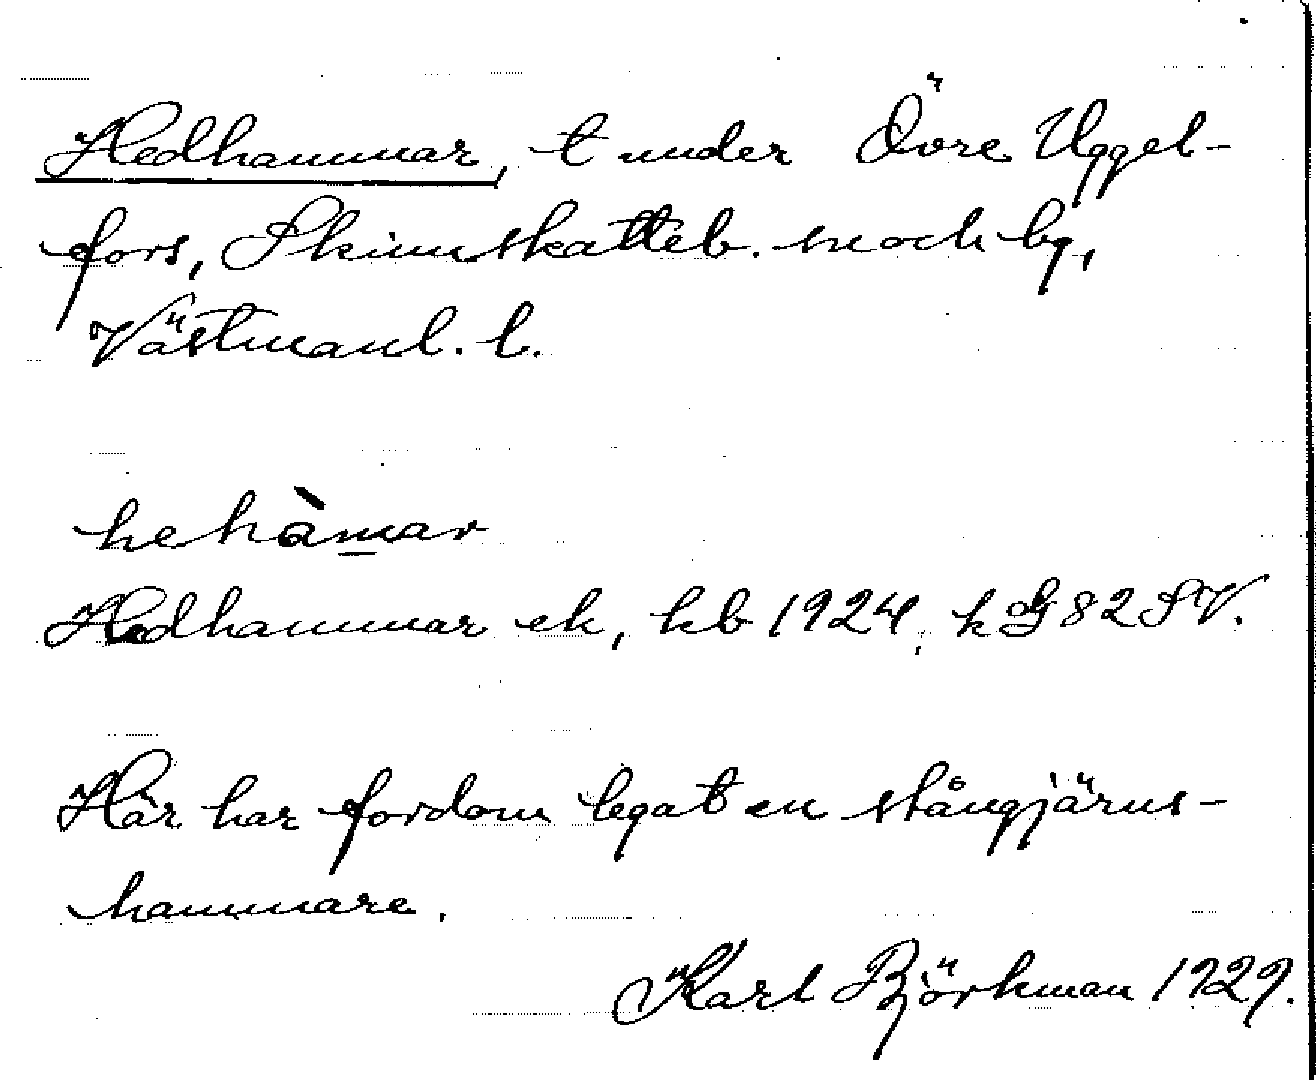 Hedhammar, t under Övre Uggel-
fors, Skinnskatteb. sn och bg,
Västmanl. l.
hehàmar
Hedhammar ek, kb 1924, k G 82 SV.
Här har fordom legat en stångjärns-
hammare.
Karl Björkman 1929.